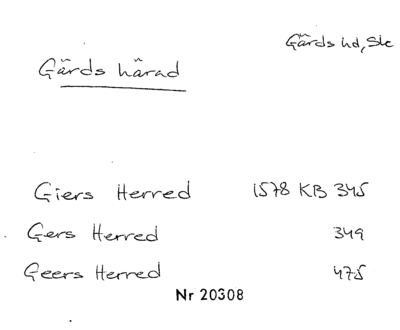 Gärds hd, Sk
Gärds härad
Giers Herred 1578 KB 345
Gers Herred 349
Geers Herred 475
Nr 20308